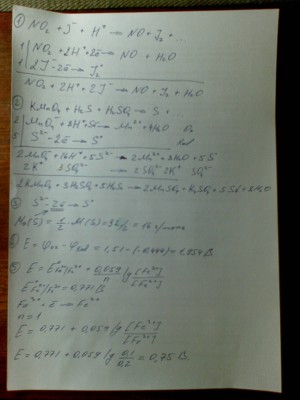 ① NO₂⁻ + J⁻ + H⁺ → NO + J₂ + ...
1 | NO₂⁻ + 2H⁺ + ē → NO + H₂O
1 | 2J⁻ - 2ē → J₂°
NO₂ + 2H⁺ + 2J⁻ → NO + J₂ + H₂O
② KMnO₄ + H₂S + H₂SO₄ → S + ...
2 | MnO₄⁻ + 8H⁺ + 5ē → Mn²⁺ + 4H₂O Ox
5 | S²⁻ - 2ē → S° Red
2MnO₄⁻ + 16H⁺ + 5S²⁻ → 2Mn²⁺ + 8H₂O + 5S°
2K⁺ 3SO₄²⁻ → 2SO₄²⁻ 2K⁺ SO₄²⁻
2KMnO₄ + 3H₂SO₄ + 5H₂S → 2MnSO₄ + K₂SO₄ + 5S + 8H₂O
③ S²⁻ - 2ē → S°
④ E = φox - φred = 1,51 - (-0,444) = 1,954 В
⑤ E = E°Fe³⁺/Fe²⁺ + 0,059/n lg [Fe³⁺]/[Fe²⁺]
E°Fe³⁺/Fe²⁺ = 0,771 В
Fe³⁺ + ē → Fe²⁺
n = 1
E = 0,771 + 0,059 lg [Fe³⁺]/[Fe²⁺]
E = 0,771 + 0,059 lg 0,1/0,2 = 0,75 В